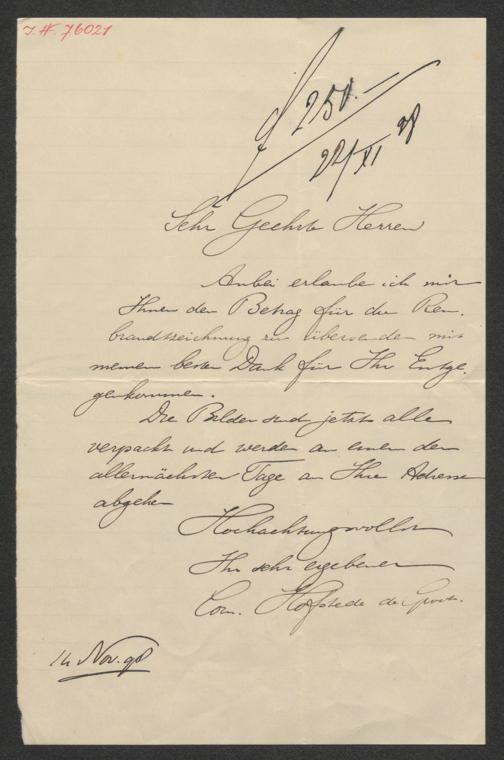 J. # 76021
f 250.—
22/XI 98
Sehr Geehrte Herren
Anbei erlaube ich mir
Ihnen den Betrag für die Rem-
brandtzeichnung zu übersenden mit
meinem besten Dank für Ihr Entge-
genkommen.
Die Bilder sind jetzt alle
verpackt und werden an einem der
allernächsten Tage an Ihre Adresse
abgehen
Hochachtungsvollst
Ihr sehr ergebener
Corn. Hofstede de Groot.
14 Nov. 98